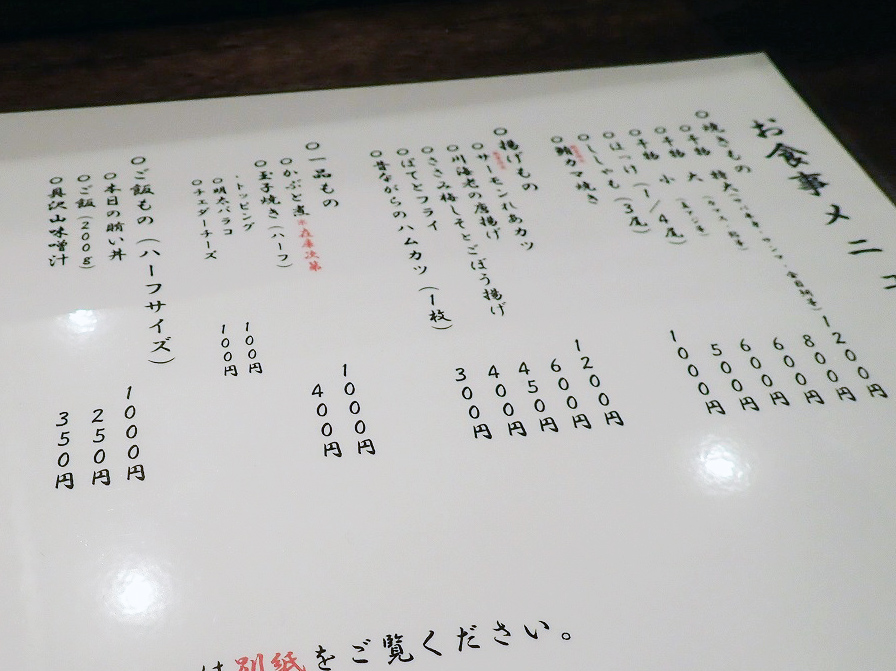 お食事メニュ
○焼きもの
○干物 特大
1200円
○干物 大
800円
○干物 小
600円
○ほっけ（1/4尾）
600円
○ししゃも（3尾）
500円
カマ焼き
1000円
○揚げもの
○サーモンれあカツ
1200円
○川海老の唐揚げ
600円
○ささみ梅しそとごぼう揚げ
450円
○ぽてとフライ
400円
○昔ながらのハムカツ（1枚）
300円
○一品もの
○かぶと煮 ※在庫次第
1000円
○玉子焼き（ハーフ）
400円
・トッピング
○明太バラコ
100円
○チェダーチーズ
100円
○ご飯もの（ハーフサイズ）
○本日の賄い丼
1000円
○ご飯（200g）
250円
○具沢山味噌汁
350円
は別紙をご覧ください。